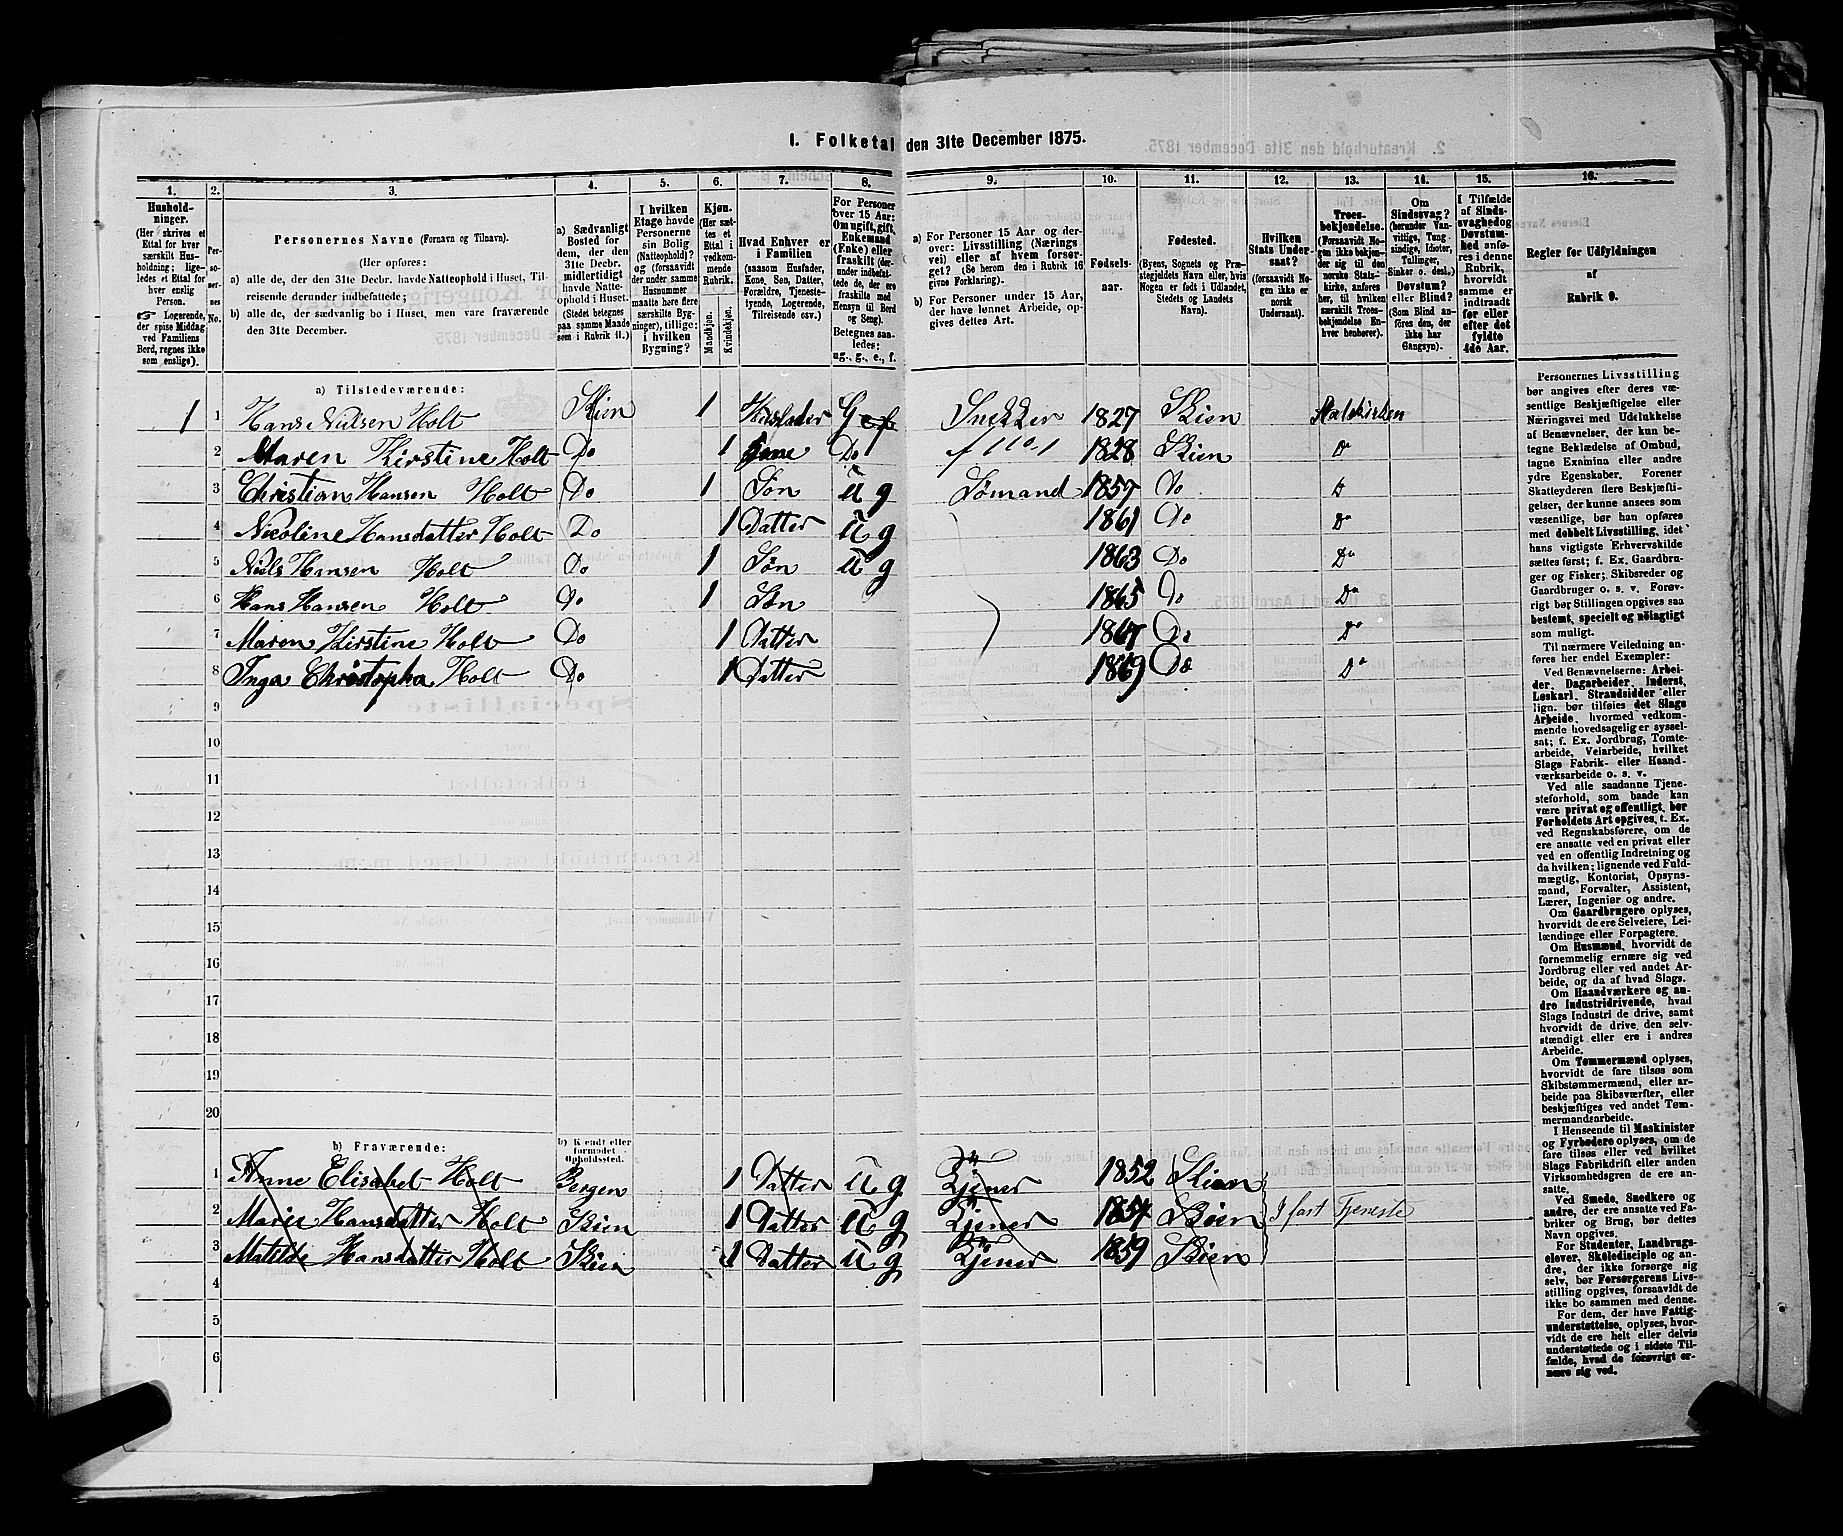 1. Folketal den 31te December 1875.
1. 2. 3. 4. 5. 6. 7. 8. 9. 10. 11. 12. 13. 14. 15. 16.
Husholdninger.
(Her skrives et
Ettal for hver
særskilt Husholdning;
ligeledes et Ettal for
hver enslig
Person.
Logerende,
der spise Middag
ved Familiens
Bord, regnes ikke
som enslige).
Personernes No.
Personernes Navne (Fornavn og Tilnavn).
(Her opføres:
a) alle de, der den 31te Decbr. havde Natteophold i Huset, Tilreisende derunder indbefattede;
b) alle de, der sædvanlig bo i Huset, men vare fraværende den 31te December.
a) Sædvanligt
Bosted for
dem, der den
31te Decbr.
midlertidigt
havde Natteophold
i Huset.
(Stedet betegnes
paa samme Maade
som i Rubrik 11.)
I hvilken
Etage havde
Personerne
sin Bolig
(Natteophold)?
og (forsaavidt
der under samme
Husnummer
maatte høre flere
særskilte Bygninger), tillige:
i hvilken
Bygning?
Kjøn.
(Her sættes et
Ettal i
vedkommende
Rubrik.
Mandkjøn.
Kvindekjøn.
Hvad Enhver er
i Familien
(saasom Husfader,
Kone, Søn, Datter,
Forældre, Tjenestetyende, Logerende,
Tilreisende osv.)
For Personer
over 15 Aar:
Om ugift, gift,
Enkemand
(Enke) eller
fraskilt (derunder indbefattede de, der ere
fraskilte med
Hensyn til Bord
og Seng).
Betegnes saaledes:
ug., g., e., f.
a) For Personer 15 Aar og derover: Livsstilling (Næringsvei) eller af hvem forsørget? (Se herom den i Rubrik 16 givne Forklaring).
b) For Personer under 15 Aar, der have lønnet Arbeide, opgives dettes Art.
Fødselsaar.
Fødested.
(Byens, Sognets og Præstegjeldets Navn eller, hvis
Nogen er født i Udlandet,
Stedets og Landets
Navn).
Hvilken
Stats Undersaat?
(forsaavidt Nogen ikke er
norsk
Undersaat).
Troesbekjendelse.
(Forsaavidt Nogen ikke bekjender sig til den
norske Statskirke, anføres
her, til hvilken
særskilt Troesbekjendelse Enhver henhører).
Om
Sindssvag?
(herunder Vanvittige, Tungsindige, Idioter,
Tullinger,
Sinker o. desl.)
Døvstum?
eller Blind?
(Som Blind anføres den, der
ikke har
Gangsyn).
I Tilfælde
af Sindssvaghed og
Døvstumhed anføres i denne
Rubrik,
hvorvidt
samme er
indtraadt
før eller
efter det
fyldte
4de Aar.
Regler for Udfyldningen
af
Rubrik 9.
a) Tilstedeværende:
1 1 Hans Nilsen Holt Skien 1 Husfader G Snekker 1827 Skien Statskirken
2 Maren Kirstine Holt Do 1 Kone Do 1828 Skien Do
3 Christian Hansen Holt Do 1 Søn u g Sømand 1857 Do Do
4 Nicoline Hansdatter Holt Do 1 Datter u g 1861 Do Do
5 Niels Hansen Holt Do 1 Søn u g 1863 Do Do
6 Hans Hansen Holt Do 1 Søn 1865 Do Do
7 Maren Kirstine Holt Do 1 Datter 1867 Do Do
8 Inga Christopha Holt Do 1 Datter 1869 Do Do
9
10
11
12
13
14
15
16
17
18
19
20
b) Fraværende:
b) Kjendt eller
formodet
Opholdssted.
1 Anne Elisabet Holt Bergen 1 Datter u g Tjener 1852 Skien
2 Marie Hansdatter Holt Skien 1 Datter u g Tjener 1854 Skien I fast Tjeneste
3 Matilde Hansdatter Holt Skien 1 Datter u g Tjener 1859 Skien
4
5
6
Personernes Livsstilling
bør angives efter deres væsentlige Beskjæftigelse eller
Næringsvei med Udelukkelse
af Benævnelser, der kun betegne Beklædelse af Ombud,
tagne Examina eller andre
ydre Egenskaber. Forener
Skatteyderen flere Beskjæftigelser, der kunne ansees som
væsentlige, bør han opføres
med dobbelt Livsstilling, idet
hans vigtigste Erhvervskilde
sættes først; f. Ex. Gaardbruger og Fisker; Skibsreder og
Gaardbruger o. s. v. Forøvrigt bør Stillingen opgives saa
bestemt, specielt og nöiagtigt
som muligt.
Til nærmere Veiledning anføres her endel Exempler:
Ved Benævnelserne: Arbeider, Dagarbeider, Inderst,
Løskarl, Strandsidder eller
lign. bør tilføies det Slags
Arbeide, hvormed vedkommende hovedsagelig er sysselsat; f. Ex. Jordbrug, Tomtearbeide, Veiarbeide, hvilket
Slags Fabrik- eller Haandværksarbeide o. s. v.
Ved alle saadanne Tjenesteforhold, som baade kan
være privat og offentligt, bør
Forholdets Art opgives, t. Ex.
ved Regnskabsførere, om de
ere ansatte ved en privat eller
ved en offentlig Indretning og
da hvilken; lignende ved Fuldmægtig, Kontorist, Opsynsmand, Forvalter, Assistent,
Lærer, Ingeniør og andre.
Om Gaardbrugere oplyses,
hvorvidt de ere Selveiere, Leilændinge eller Forpagtere.
Om Husmænd, hvorvidt de
fornemmelig ernære sig ved
Jordbrug eller ved andet Arbeide, og da af hvad Slags.
Om Haandværkere og andre Industridrivende, hvad
Slags Industri de drive, samt
hvorvidt de drive den selvstændigt eller ere i andres
Arbeide.
Om Tømmermænd oplyses,
hvorvidt de fare tilsøs som
Skibstømmermænd, eller arbeide paa Skibsværfter, eller
beskjæftiges ved andet Tømmermandsarbeide.
I Henseende til Maskinister
og Fyrbødere oplyses, om de
fare tilsøs eller ved hvilket
Slags Fabrikdrift eller anden
Virksomhedsgren de ere ansatte.
Ved Smede, Snedkere og
andre, der ere ansatte ved Fabriker og Brug, bør dettes
Navn opgives.
For Studenter, Landbrugselever, Skoledisciple og andre, der ikke forsørge sig
selv, bør Forsørgerens Livsstilling opgives, forsaavidt de
ikke bo sammen med denne.
For dem, der have Fattigunderstøttelse, oplyses, hvorvidt de ere helt eller delvis
understøttede og i sidste Tilfælde, hvad de forøvrigt ernære sig ved.